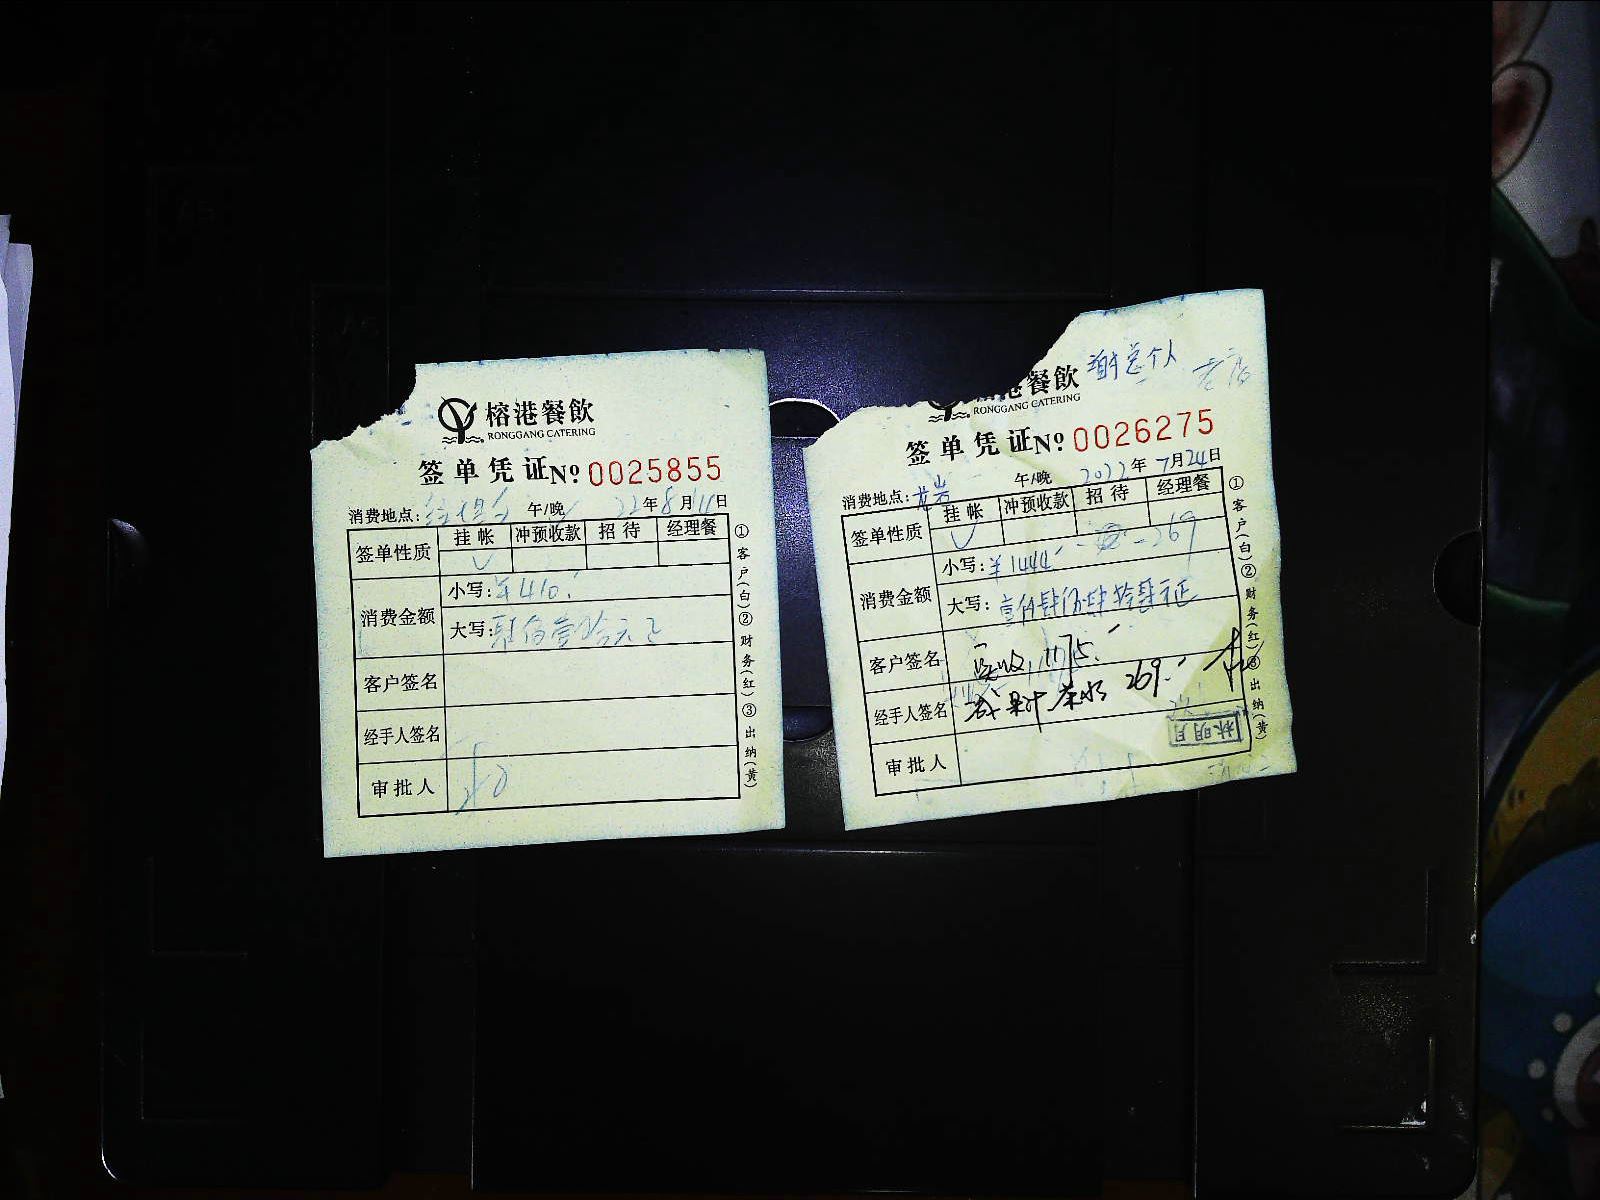 榕港餐飲
RONGGANG CATERING
签单凭证 No 0025855
消费地点: 午/晚 22年8月11日
签单性质 挂帐 冲预收款 招待 经理餐
✓
消费金额 小写: ¥410.
大写: 肆佰壹拾元正
客户签名
经手人签名
审批人
①客户(白)②财务(红)③出纳(黄)
谢总个人
港餐飲
RONGGANG CATERING
签单凭证 No 0026275
消费地点: 龙岩 午/晚 2022年7月24日
签单性质 挂帐 冲预收款 招待 经理餐
✓ 269
消费金额 小写: ¥1444
大写: 壹仟肆佰肆拾肆元正
客户签名 实收 1175.
经手人签名 减果汁茶水 269.
林明月
审批人
①客户(白)②财务(红)③出纳(黄)